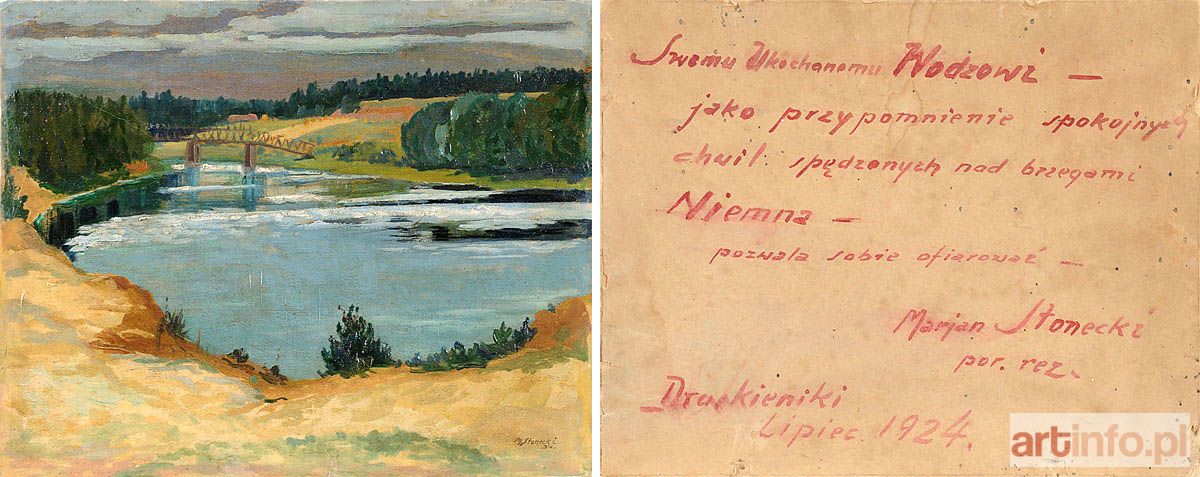 M. Słonecki
Swemu Ukochanemu Wodzowi —
jako przypomnienie spokojnych
chwil spędzonych nad brzegami
Niemna —
pozwala sobie ofiarować —
Marjan Słonecki
por. rez.
Druskieniki
Lipiec 1924.
artinfo.pl